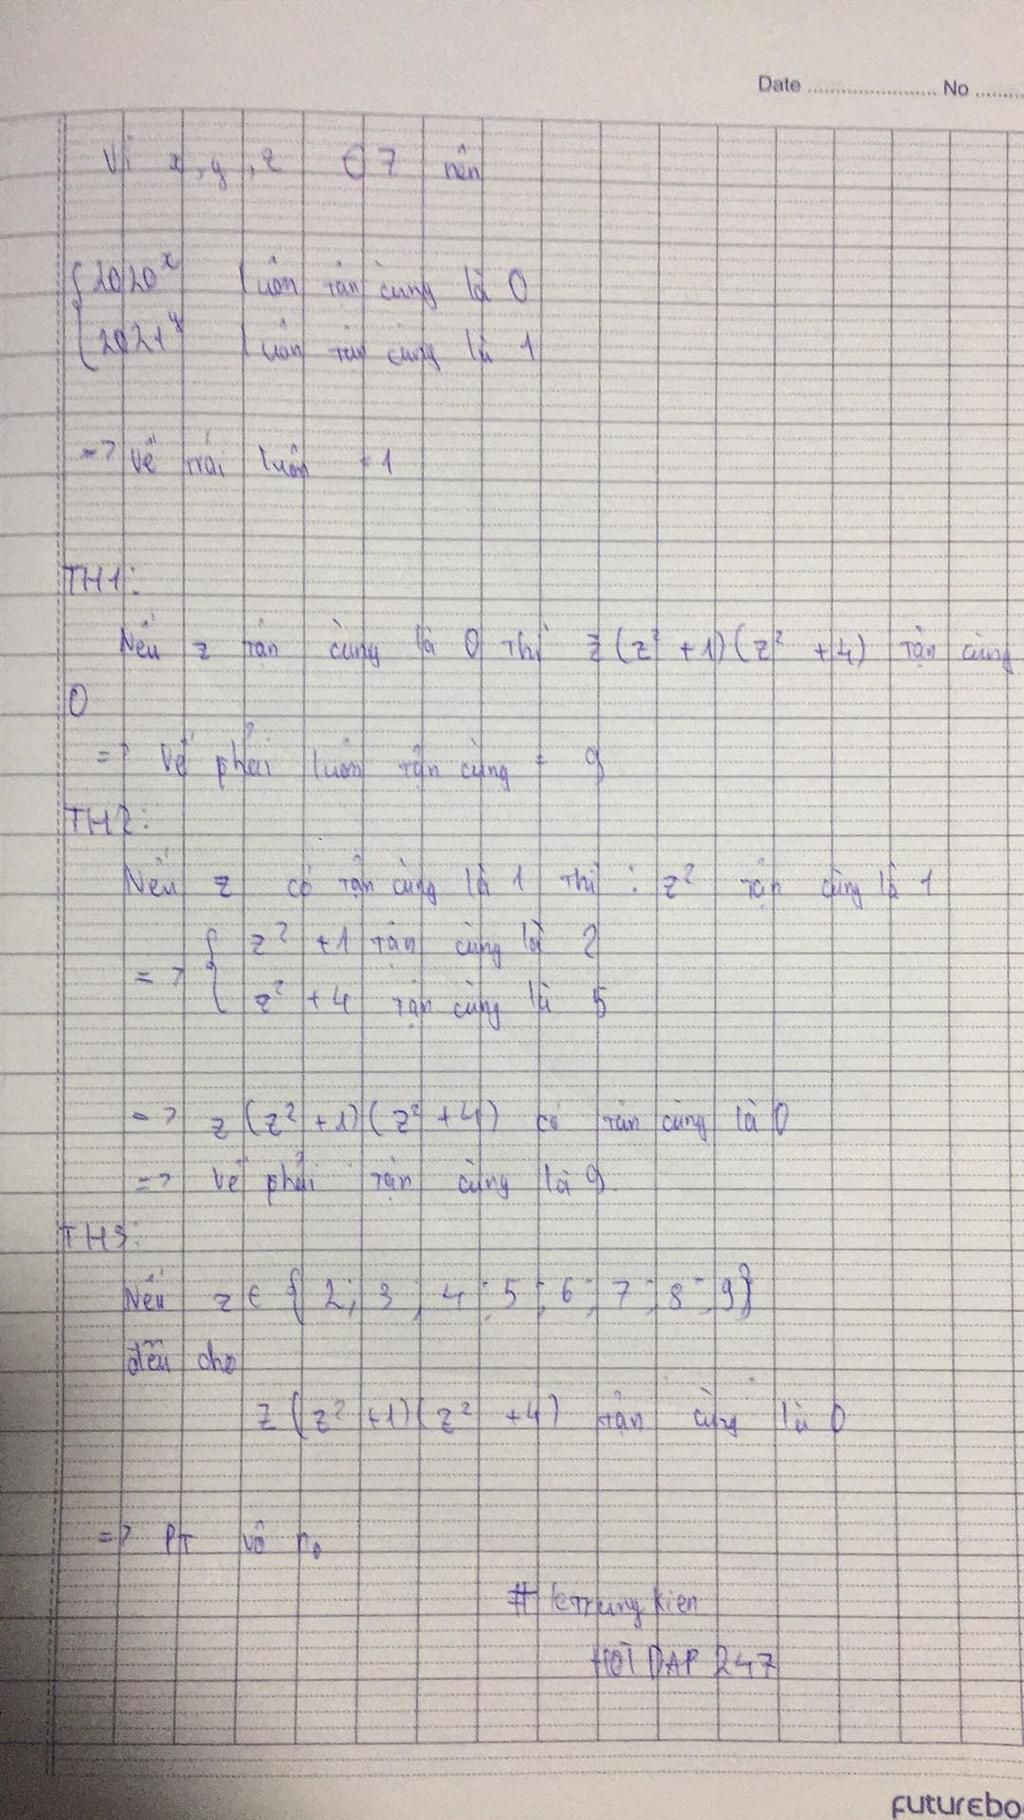 Date ........................ No ........
Vì x, y, z ∈ Z nên
{ 2020^x luôn tận cùng là 0
{ 2021^y luôn tận cùng là 1
=> Vế trái luôn = 1
TH1:
Nếu z tận cùng là 0 thì z(z² + 1)(z² + 4) tận cùng
0
=> Vế phải luôn tận cùng = 9
TH2:
Nếu z có tận cùng là 1 thì : z² tận cùng là 1
=> { z² + 1 tận cùng là 2
{ z² + 4 tận cùng là 5
=> z(z² + 1)(z² + 4) có tận cùng là 0
=> Vế phải tận cùng là 9
TH3:
Nếu z ∈ {2; 3; 4; 5; 6; 7; 8; 9}
đều cho
z(z² + 1)(z² + 4) tận cùng là 0
=> PT vô no
# letrungkien
HOI DAP 247
FUTUREBO